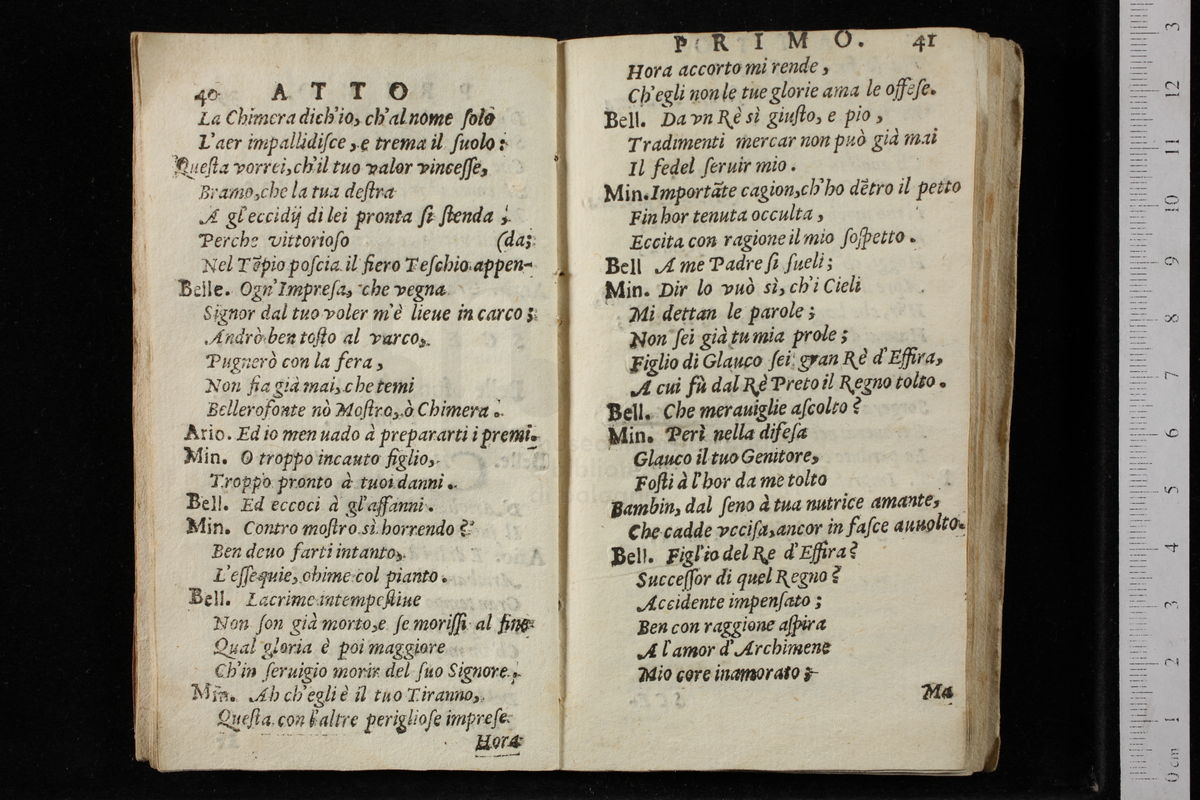 40 ATTO
La Chimera dich'io, ch'al nome solo
L'aer impallidisce, e trema il suolo:
Questa vorrei, ch'il tuo valor vincesse,
Bramo, che la tua destra
A gl'eccidij di lei pronta si stenda;
Perche vittorioso (da;
Nel Tẽpio poscia il fiero Teschio appen-
Belle. Ogn'Impresa, che vegna
Signor dal tuo voler m'è lieue in carco;
Andrò ben tosto al varco,
Pugnerò con la fera,
Non fia già mai, che temi
Bellerofonte nò Mostro, ò Chimera.
Ario. Ed io men uado à prepararti i premi.
Min. O troppo incauto figlio,
Troppo pronto à tuoi danni.
Bell. Ed eccoci à gl'affanni.
Min. Contro mostro sì horrendo?
Ben deuo farti intanto,
L'essequie, ohime col pianto.
Bell. Lacrime intempestiue
Non son già morto, e se morissi al fine
Qual gloria è poi maggiore
Ch'in seruigio morir del suo Signore.
Min. Ah ch'egli è il tuo Tiranno,
Questa con l'altre perigliose imprese
Hora
PRIMO. 41
Hora accorto mi rende,
Ch'egli non le tue glorie ama le offese.
Bell. Da vn Rè sì giusto, e pio,
Tradimenti mercar non può già mai
Il fedel seruir mio.
Min. Importãte cagion, ch'ho dẽtro il petto
Fin hor tenuta occulta,
Eccita con ragione il mio sospetto.
Bell A me Padre si sueli;
Min. Dir lo vuò sì, ch'i Cieli
Mi dettan le parole;
Non sei già tu mia prole;
Figlio di Glauco sei gran Rè d'Effira,
A cui fù dal Rè Preto il Regno tolto.
Bell. Che merauiglie ascolto?
Min. Perì nella difesa
Glauco il tuo Genitore,
Fosti à l'hor da me tolto
Bambin, dal seno à tua nutrice amante,
Che cadde vccisa, ancor in fasce auuolto.
Bell. Figl'io del Re d'Effira?
Successor di quel Regno?
Accidente impensato;
Ben con raggione aspira
A l'amor d'Archimene
Mio core inamorato;
Ma
0 cm 1 2 3 4 5 6 7 8 9 10 11 12 3